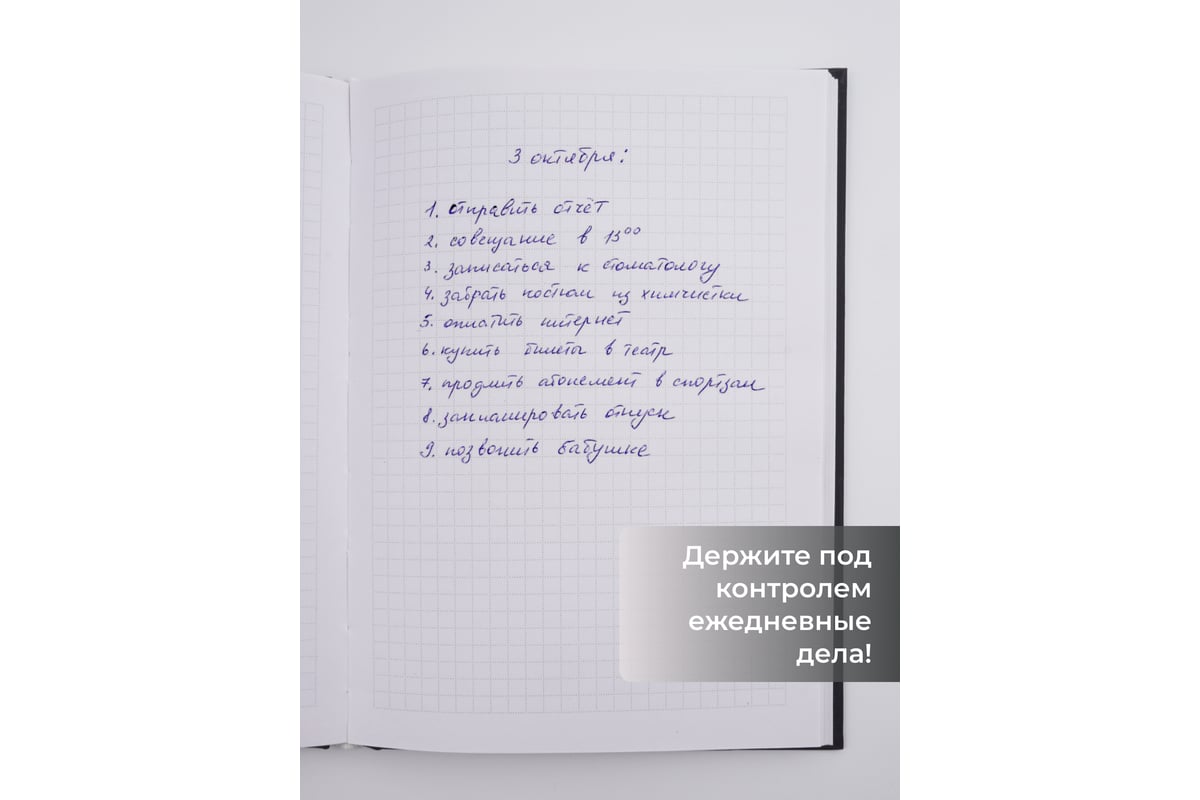 3 октября:
1. отправить отчёт
2. совещание в 15⁰⁰
3. записаться к стоматологу
4. забрать костюм из химчистки
5. оплатить интернет
6. купить билеты в театр
7. продлить абонемент в спортзал
8. запланировать отпуск
9. позвонить бабушке
Держите под
контролем
ежедневные
дела!